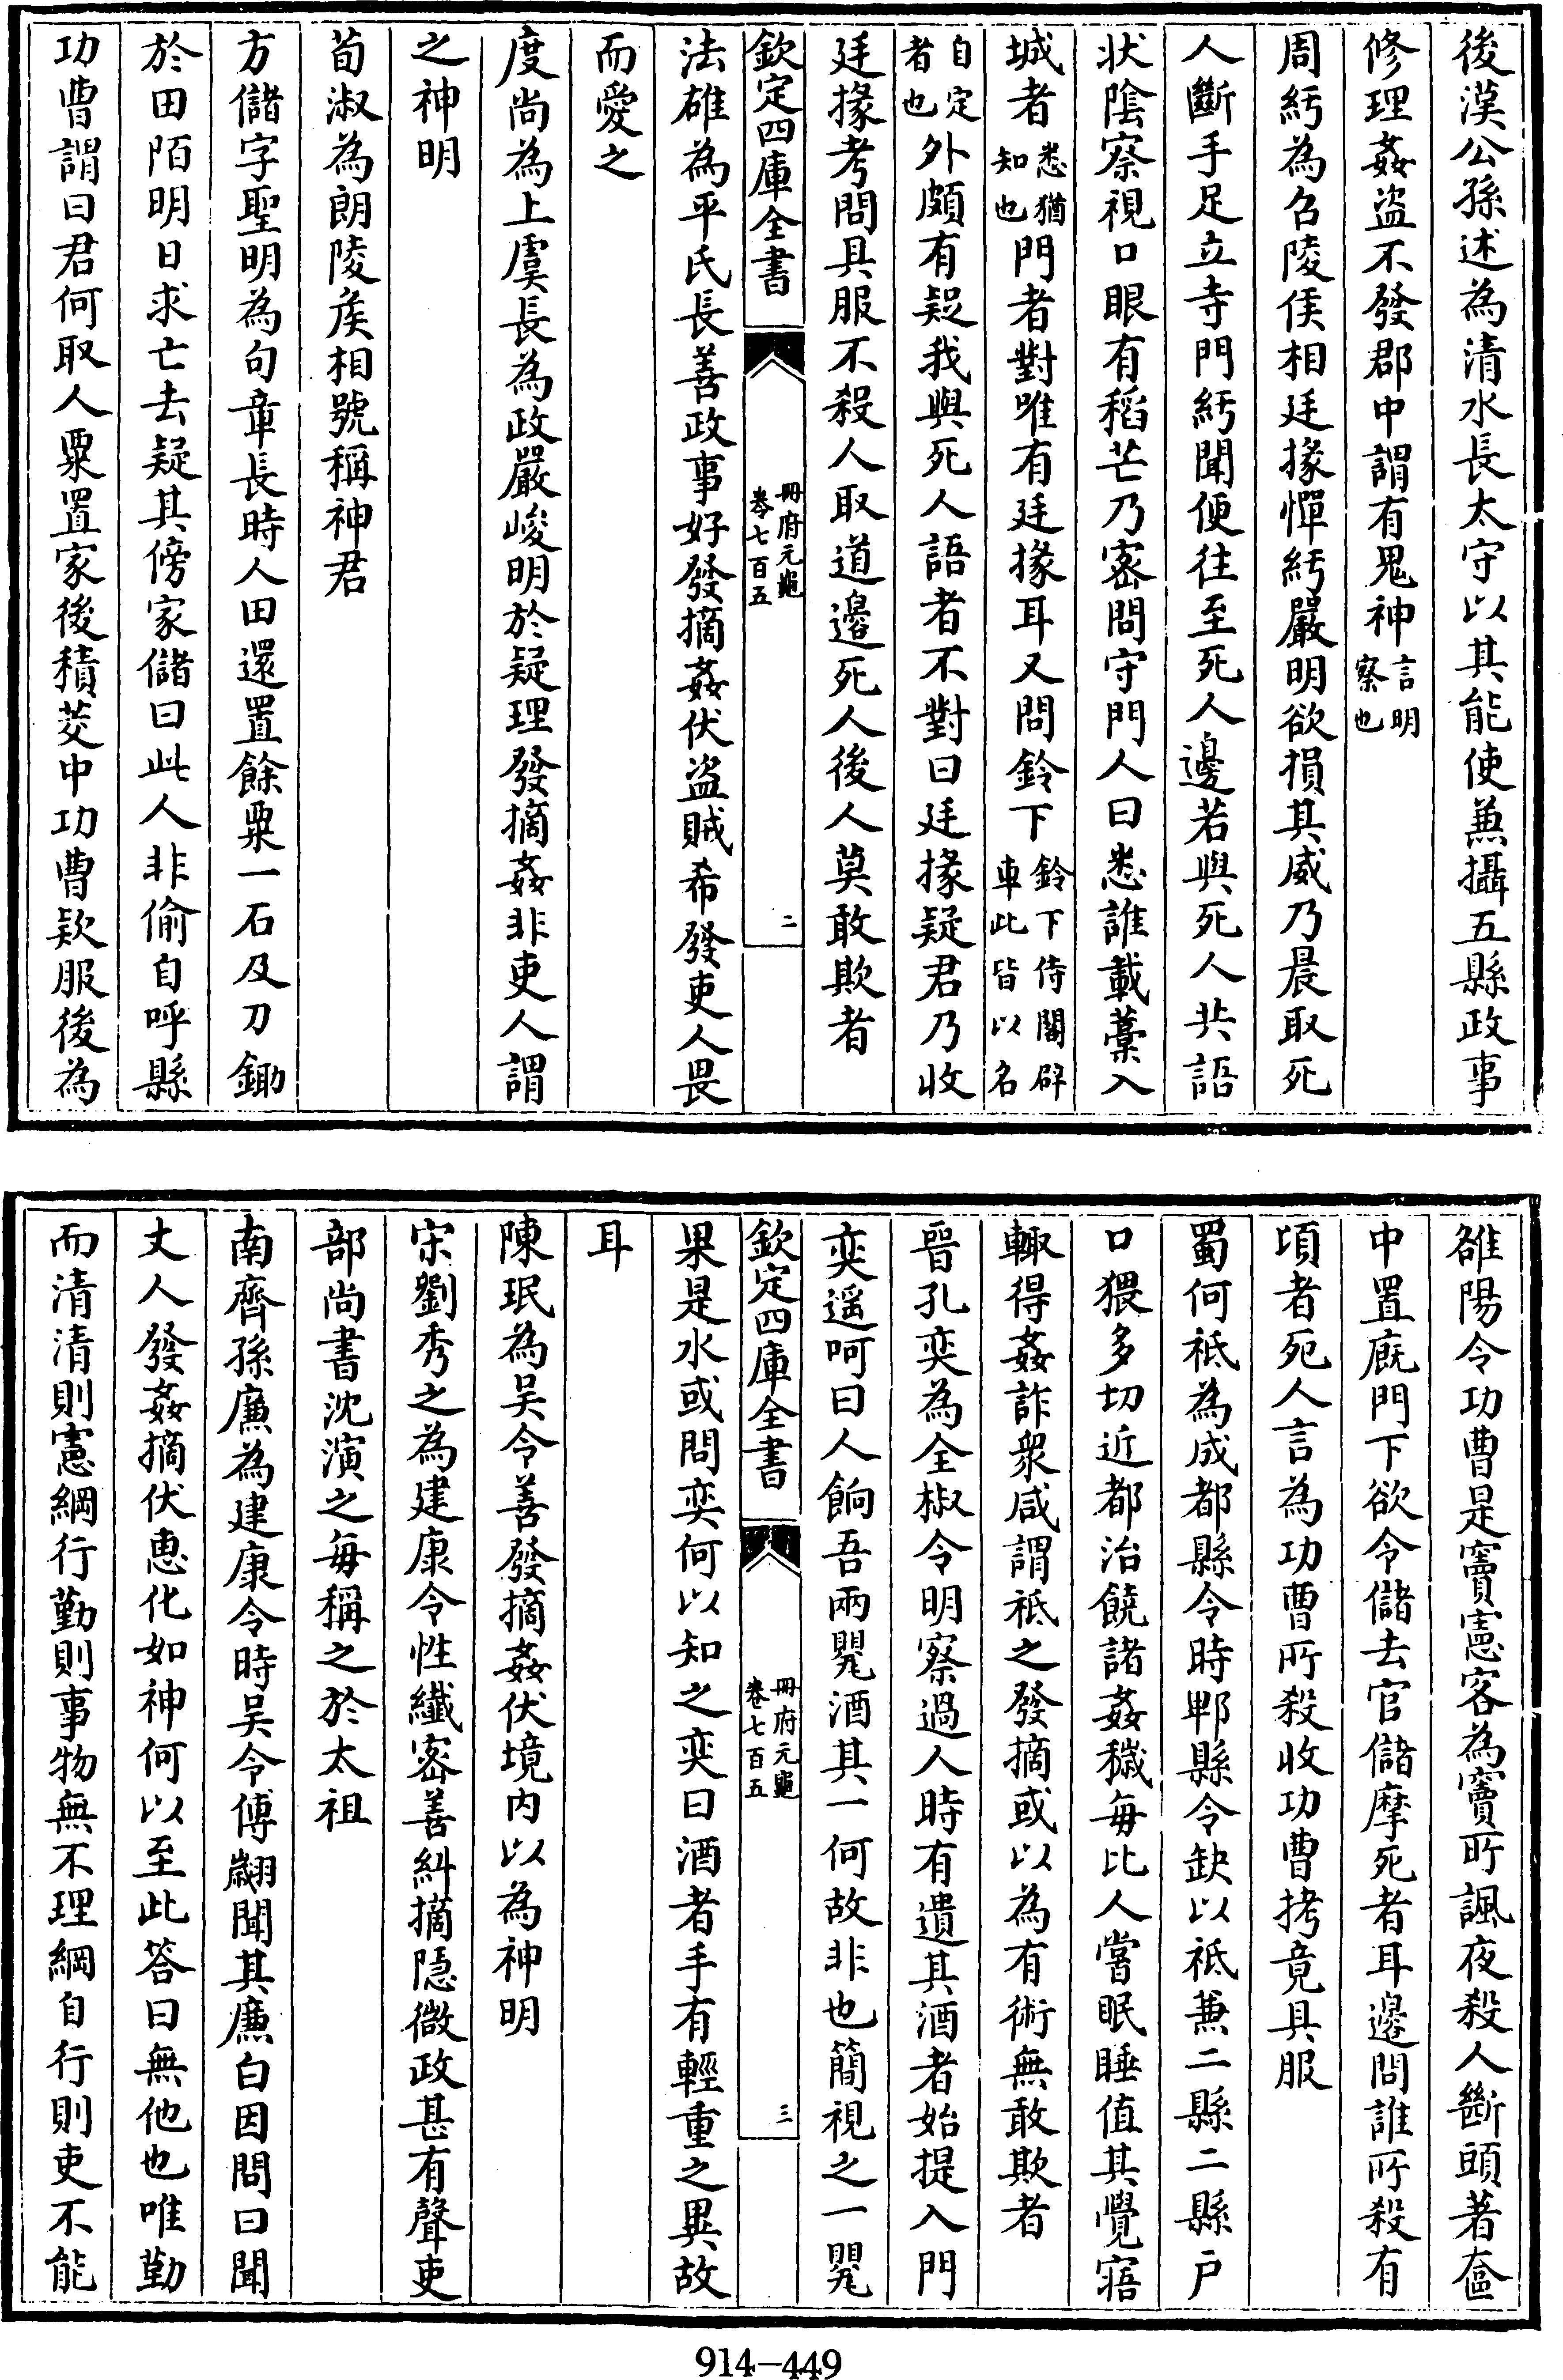 後漢公孫述為清水長太守以其能使兼攝五縣政事
修理姦盜不發郡中謂有鬼神言明察也
周紆為召陵侯相廷掾憚紆嚴明欲損其威乃晨取死
人斷手足立寺門紆聞便往至死人邊若與死人共語
狀陰察視口眼有稻芒乃密問守門人曰悉誰載藁入
城者悉猶知也門者對唯有廷掾耳又問鈴下鈴下侍閤辟車此皆以名
自定者也外頗有疑我與死人語者不對曰廷掾疑君乃收
廷掾考問具服不殺人取道邊死人後人莫敢欺者
欽定四庫全書
冊府元龜
卷七百五
二
法雄為平氏長善政事好發摘姦伏盜賊希發吏人畏
而愛之
度尚為上虞長為政嚴峻明於疑理發摘姦非吏人謂
之神明
荀淑為朗陵侯相號稱神君
方儲字聖明為句章長時人田還置餘粟一石及刀鋤
於田陌明日求亡去疑其傍家儲曰此人非偷自呼縣
功曹謂曰君何取人粟置家後積茭中功曹款服後為
雒陽令功曹是竇憲客為竇所諷夜殺人斷頭著奩
中置廐門下欲令儲去官儲摩死者耳邊問誰所殺有
頃者死人言為功曹所殺收功曹拷竟具服
蜀何祗為成都縣令時郫縣令缺以祗兼二縣二縣户
口猥多切近都治饒諸姦穢每比人嘗眠睡值其覺寤
輙得姦詐衆咸謂祗之發摘或以為有術無敢欺者
晉孔奕為全椒令明察過人時有遺其酒者始提入門
奕遥呵曰人餉吾兩甖酒其一何故非也簡視之一甖
欽定四庫全書
冊府元龜
卷七百五
三
果是水或問奕何以知之奕曰酒者手有輕重之異故
耳
陳珉為吴令善發摘姦伏境内以為神明
宋劉秀之為建康令性纖密善糾摘隱微政甚有聲吏
部尚書沈演之毎稱之於太祖
南齊孫廉為建康令時吴令傅翽聞其廉白因問曰聞
丈人發姦摘伏惠化如神何以至此答曰無他也唯勤
而清清則憲綱行勤則事物無不理綱自行則吏不能
914-449